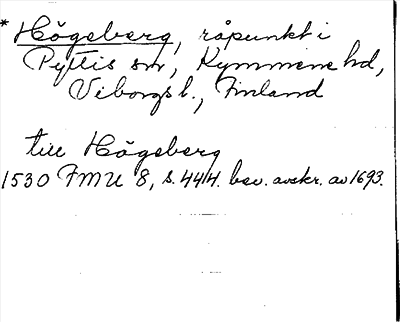 * Högeberg, råpunkt i
Pyttis sn, Kymmene hd,
Viborgs l., Finland
till Högeberg
1530 FMU 8, s. 4414. bev. avskr. av 1693.